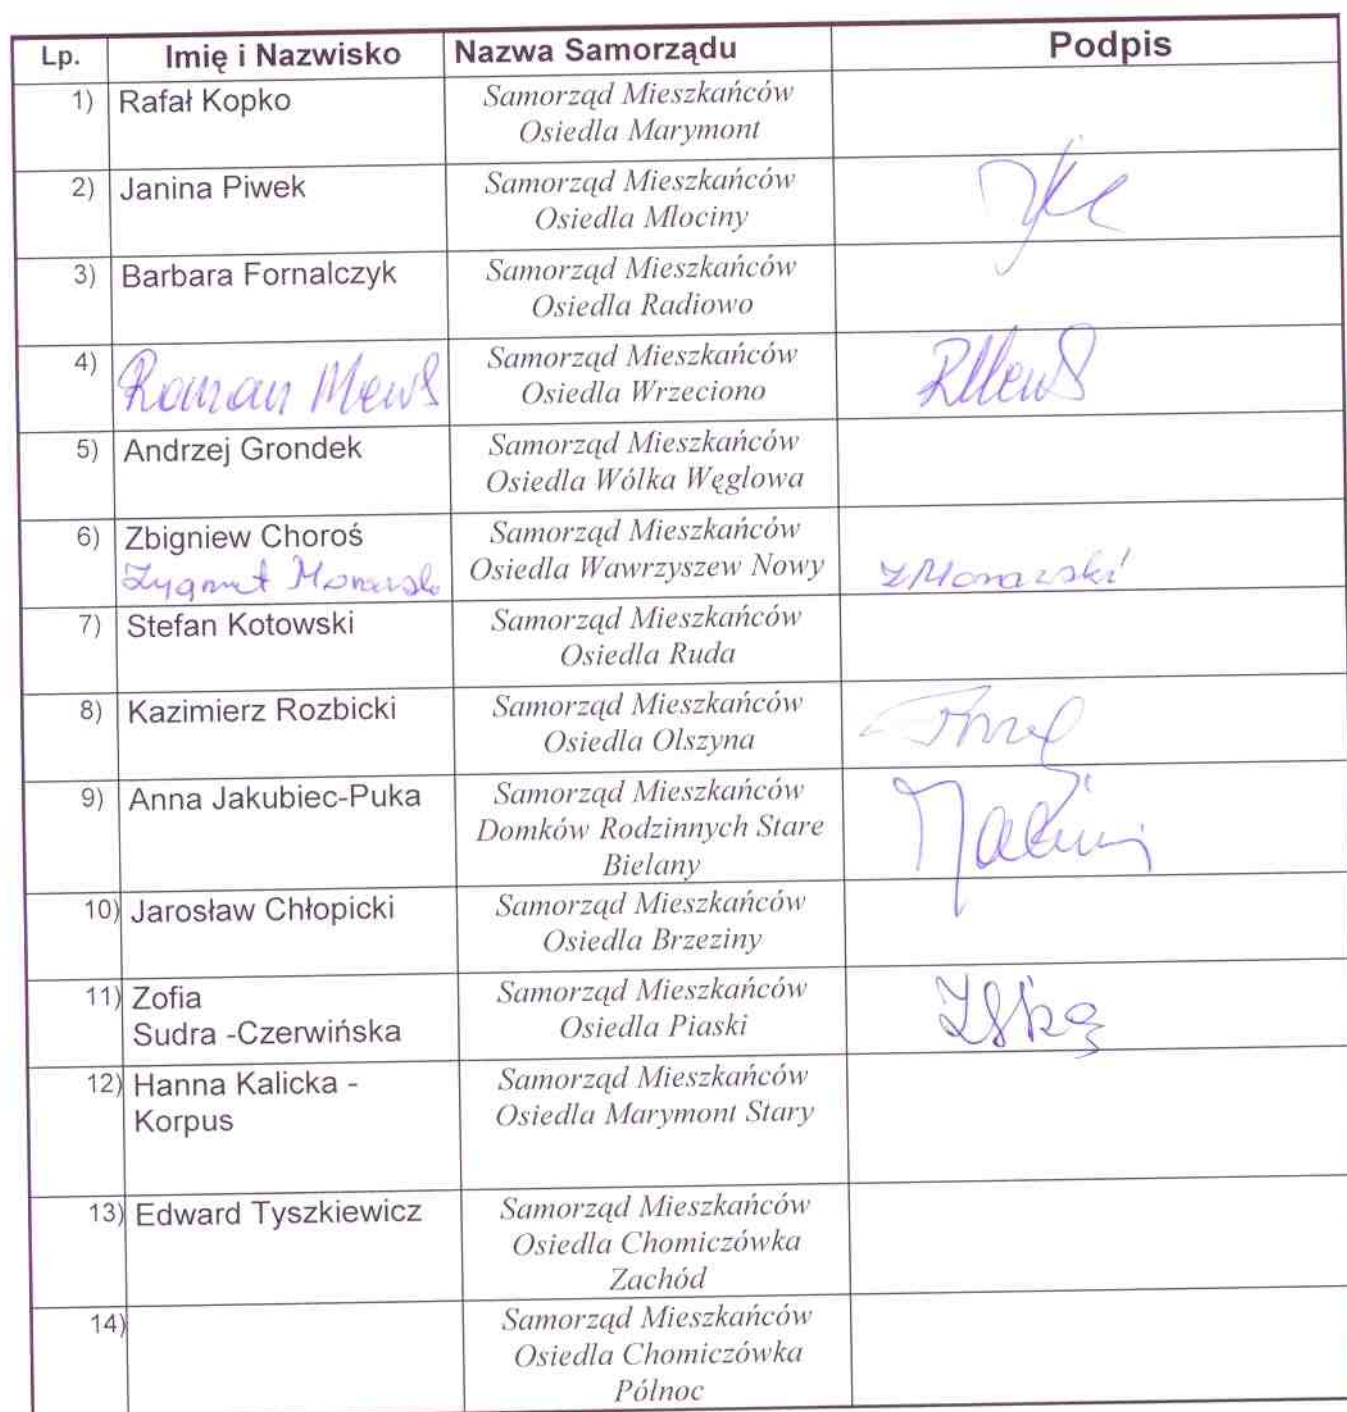 Lp. Imię i Nazwisko Nazwa Samorządu Podpis
1) Rafał Kopko Samorząd Mieszkańców
Osiedla Marymont
2) Janina Piwek Samorząd Mieszkańców
Osiedla Mlociny
3) Barbara Fornalczyk Samorząd Mieszkańców
Osiedla Radiowo
4) Roman Mews Samorząd Mieszkańców RMews
Osiedla Wrzeciono
5) Andrzej Grondek Samorząd Mieszkańców
Osiedla Wólka Węglowa
6) Zbigniew Choroś Samorząd Mieszkańców
Zygmunt Osiedla Wawrzyszew Nowy
7) Stefan Kotowski Samorząd Mieszkańców
Osiedla Ruda
8) Kazimierz Rozbicki Samorząd Mieszkańców
Osiedla Olszyna
9) Anna Jakubiec-Puka Samorząd Mieszkańców
Domków Rodzinnych Stare
Bielany
10) Jarosław Chłopicki Samorząd Mieszkańców
Osiedla Brzeziny
11) Zofia Samorząd Mieszkańców
Sudra -Czerwińska Osiedla Piaski
12) Hanna Kalicka - Samorząd Mieszkańców
Korpus Osiedla Marymont Stary
13) Edward Tyszkiewicz Samorząd Mieszkańców
Osiedla Chomiczówka
Zachód
14) Samorząd Mieszkańców
Osiedla Chomiczówka
Pólnoc